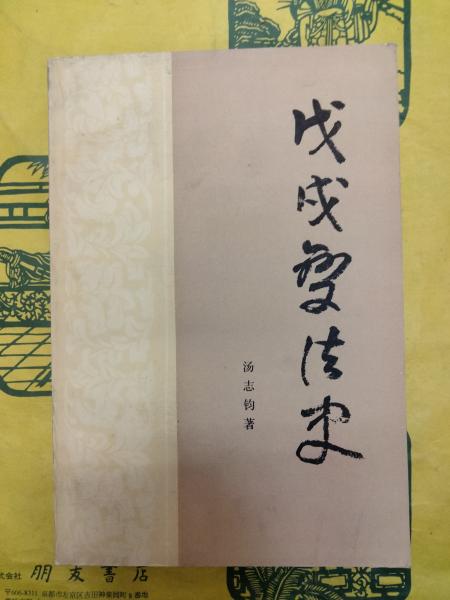 戊戌变法史
汤志钧著
式会社 朋友書店
〒606-8311 京都市左京区吉田神楽岡町8番地